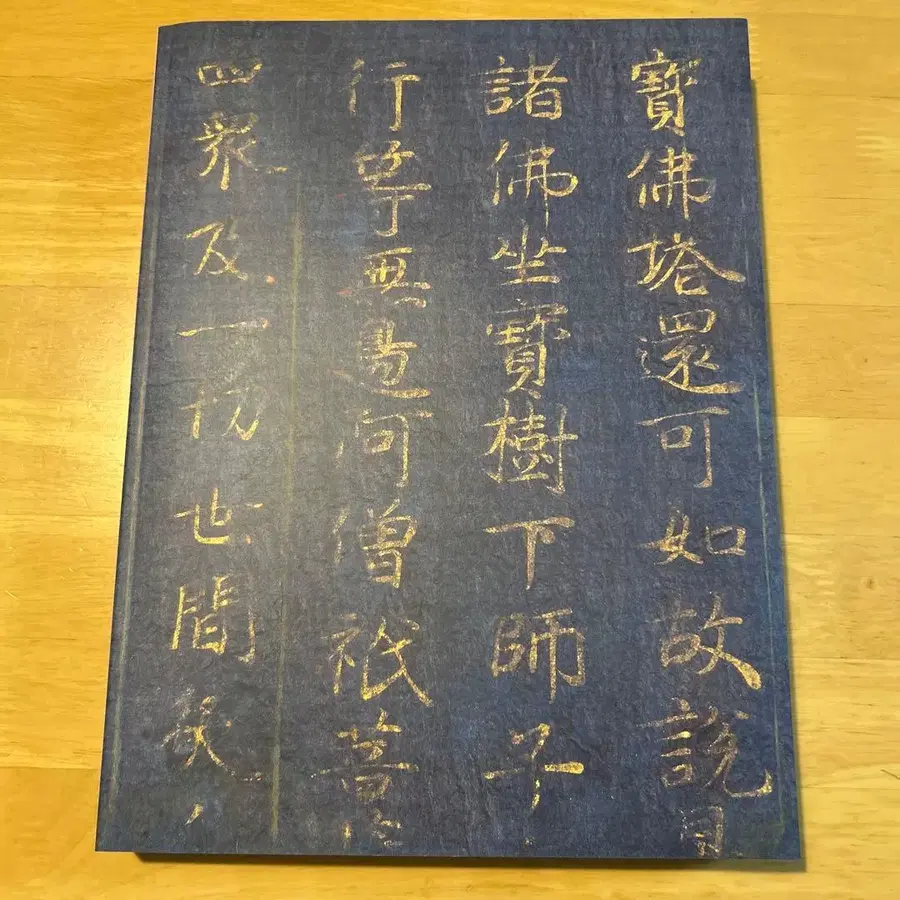 寶佛塔還可如故說
諸佛坐寶樹下師子
行等無邊阿僧祇菩
四衆及一切世間天